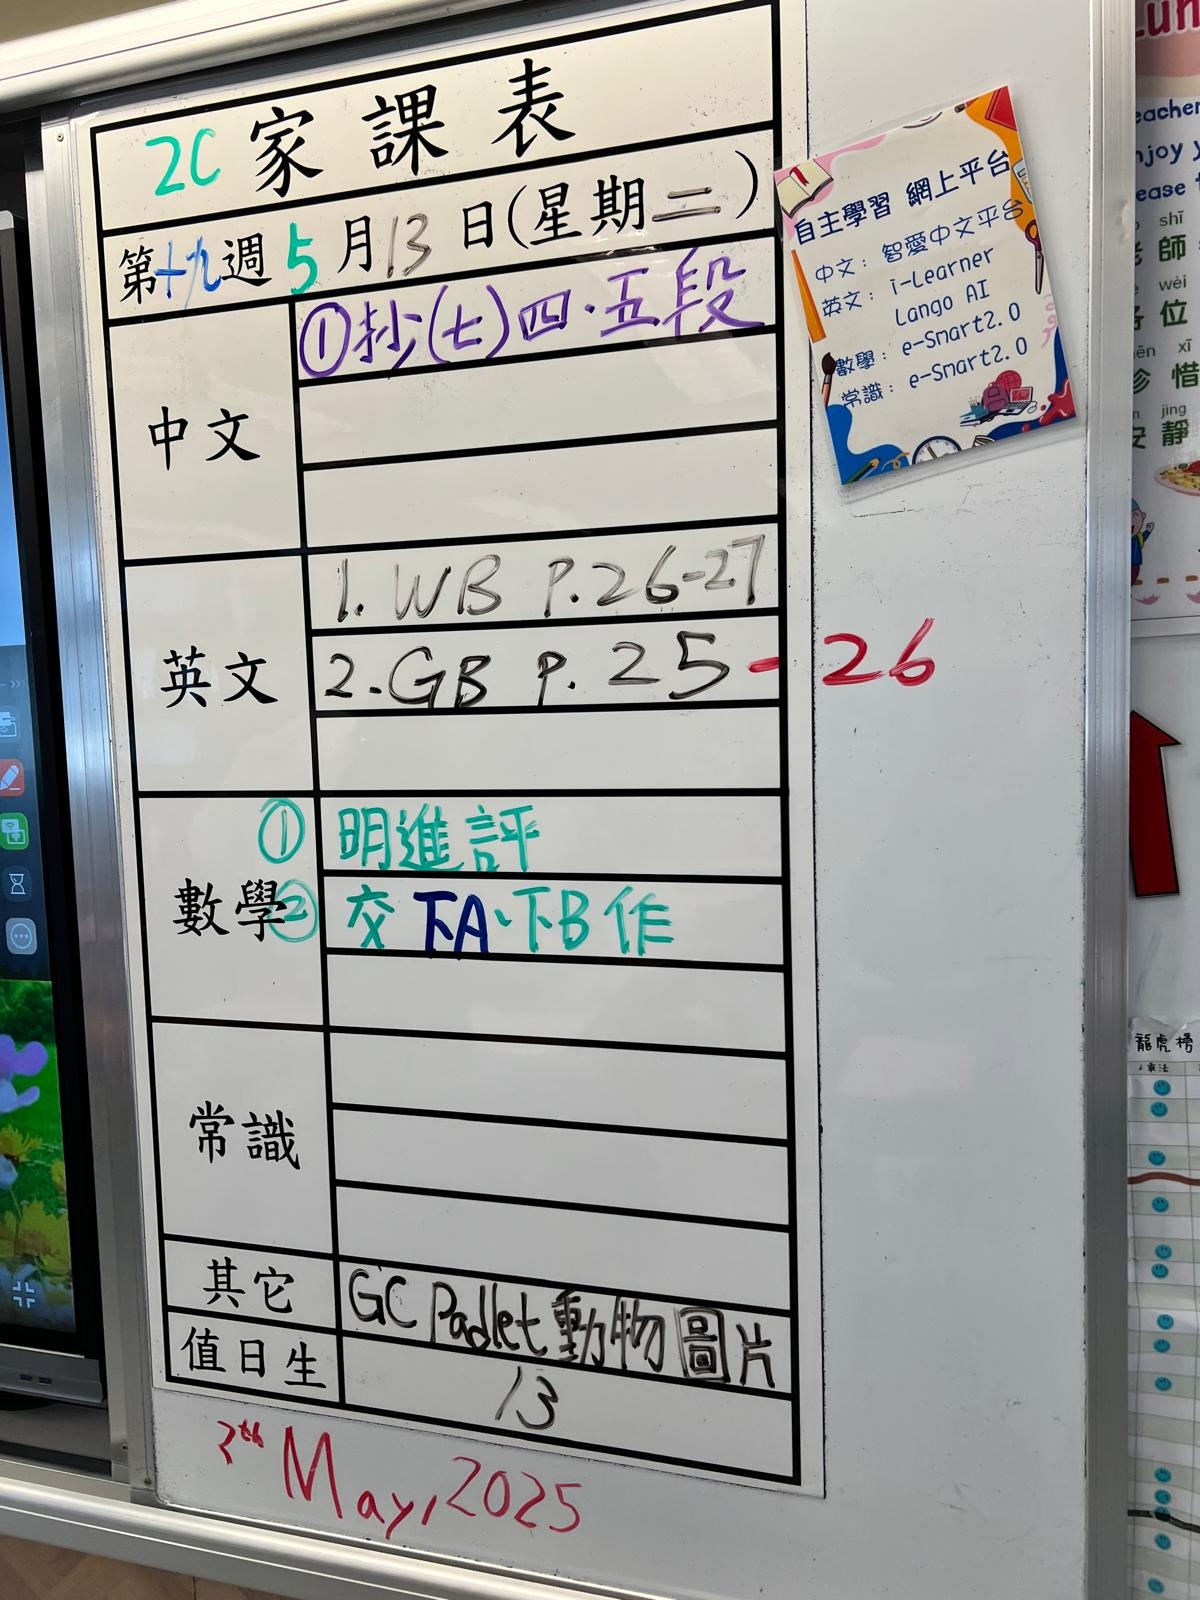 2C 家課表
第十九週 5月13日(星期二)
中文
①抄(七)四.五段
英文
1. WB P.26-27
2. GB P. 25-26
數學
① 明進評
② 交下A、下B作
常識
其它
GC Padlet 動物圖片
值日生
13
May, 2025
自主學習 網上平台
中文: 智愛中文平台
英文: i-Learner
Lango AI
數學: e-Smart2.0
常識: e-Smart2.0
njoy y
ease t
shī
師
wèi
位
xī
惜
jìng
安靜
龍虎榜